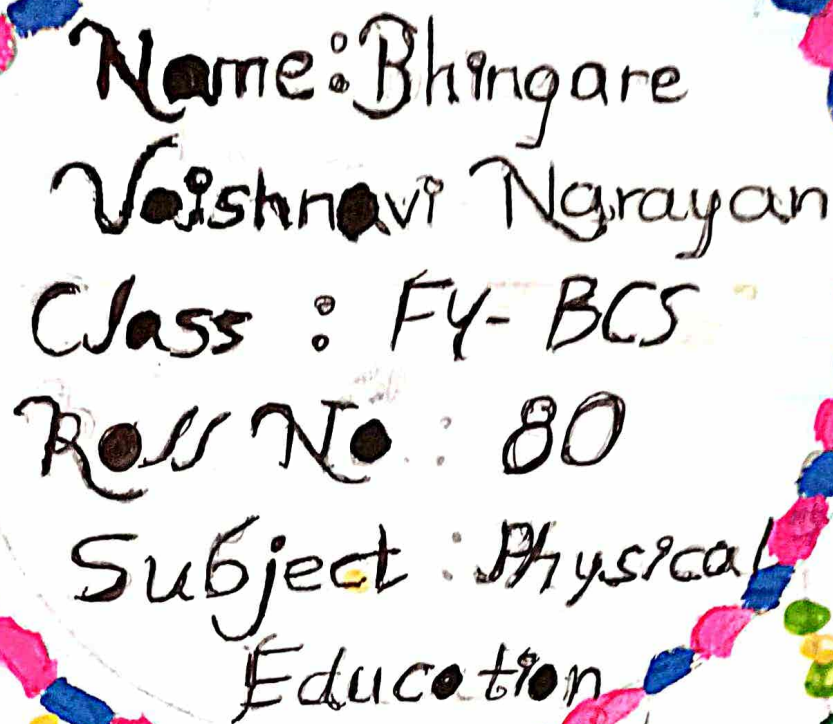 Name: Bhingare
Vaishnavi Narayan
Class : FY- BCS
Roll No : 80
Subject : Physical
Education